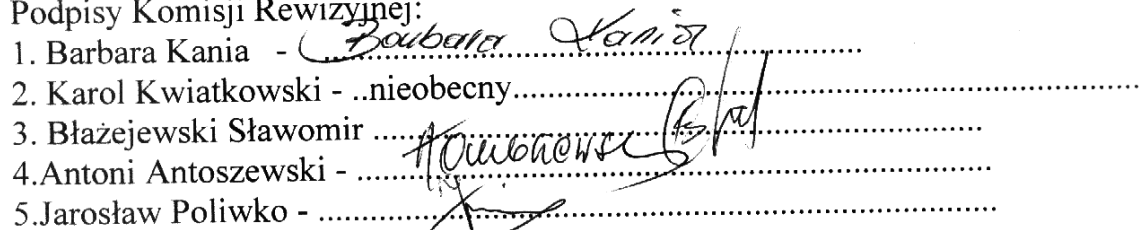 Podpisy Komisji Rewizyjnej:
1. Barbara Kania - Barbara Kania
2. Karol Kwiatkowski - ..nieobecny..........................................................................
3. Błażejewski Sławomir ......................................................................
4.Antoni Antoszewski - ........................................................................
5.Jarosław Poliwko - ..............................................................................